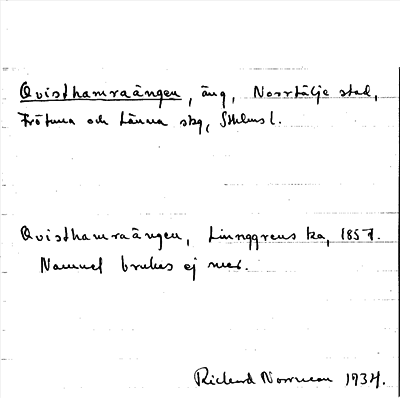 Qvisthamraängen, äng, Norrtälje stad,
Frötuna och Länna skg, Sthlms l.
Qvisthamraängen, Ljunggrens ka, 1857.
Namnet brukas ej mer.
Rickard Norrman 1934.